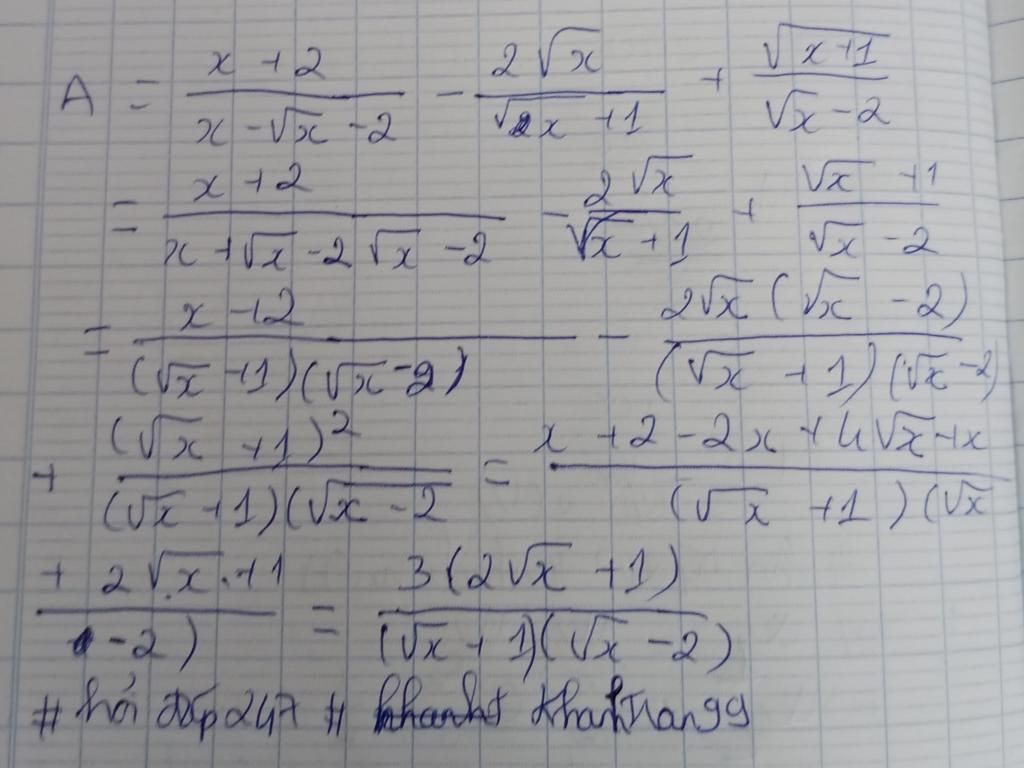 A = \frac{x+2}{x-\sqrt{x}-2} - \frac{2\sqrt{x}}{\sqrt{x}+1} + \frac{\sqrt{x+1}}{\sqrt{x}-2}
= \frac{x+2}{x+\sqrt{x}-2\sqrt{x}-2} - \frac{2\sqrt{x}}{\sqrt{x}+1} + \frac{\sqrt{x}+1}{\sqrt{x}-2}
= \frac{x+2}{(\sqrt{x}+1)(\sqrt{x}-2)} - \frac{2\sqrt{x}(\sqrt{x}-2)}{(\sqrt{x}+1)(\sqrt{x}-2)}
+ \frac{(\sqrt{x}+1)^2}{(\sqrt{x}+1)(\sqrt{x}-2} = \frac{x+2-2x+4\sqrt{x}+x}{(\sqrt{x}+1)(\sqrt{x}}
\frac{+2\sqrt{x}.+1}{-2)} = \frac{3(2\sqrt{x}+1)}{(\sqrt{x}+1)(\sqrt{x}-2)}
# hỏi đáp 247 #